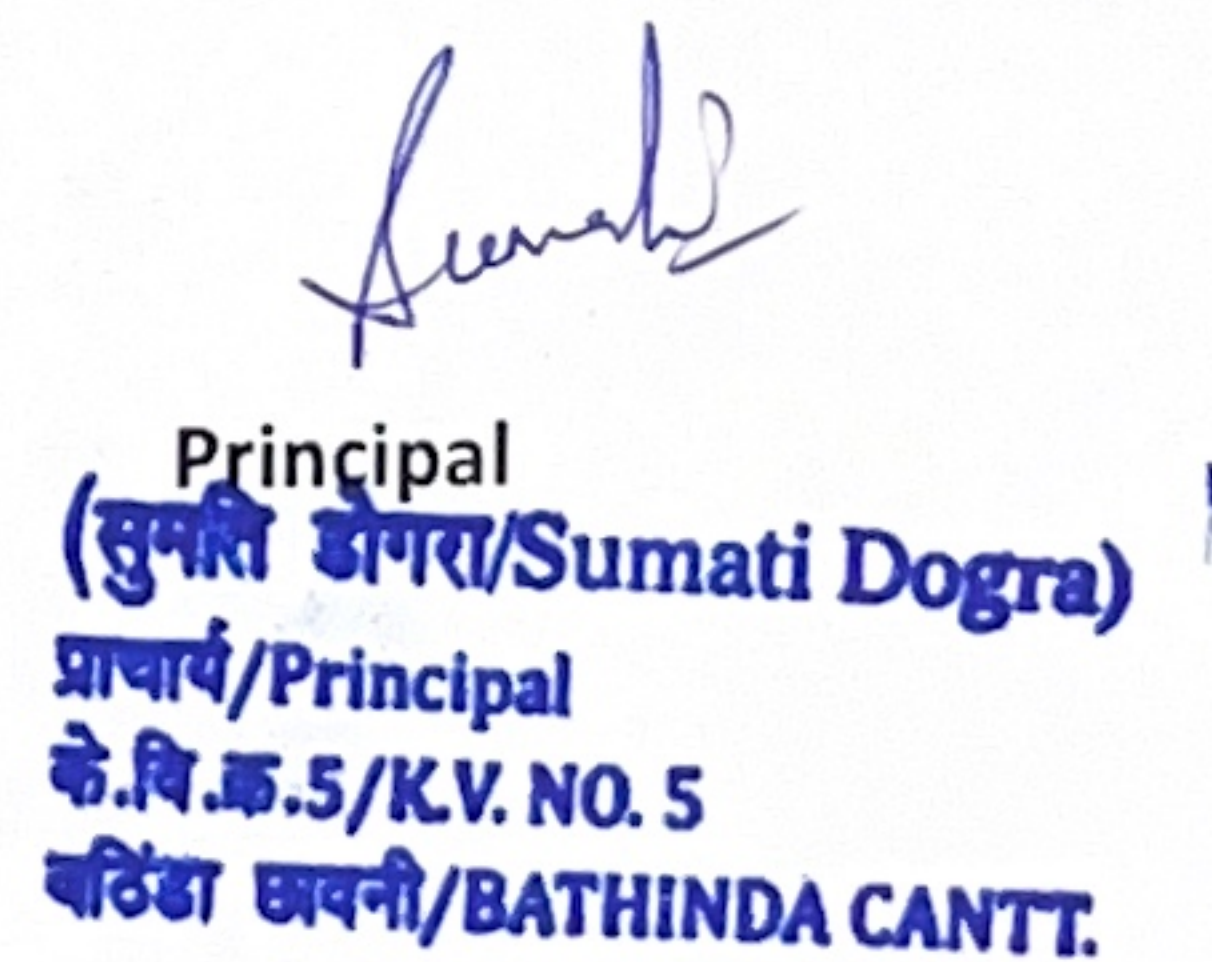 Sumati
Principal
(सुमति डोगरा/Sumati Dogra)
प्राचार्य/Principal
के.वि.क्र.5/K.V. NO. 5
बठिंडा छावनी/BATHINDA CANTT.